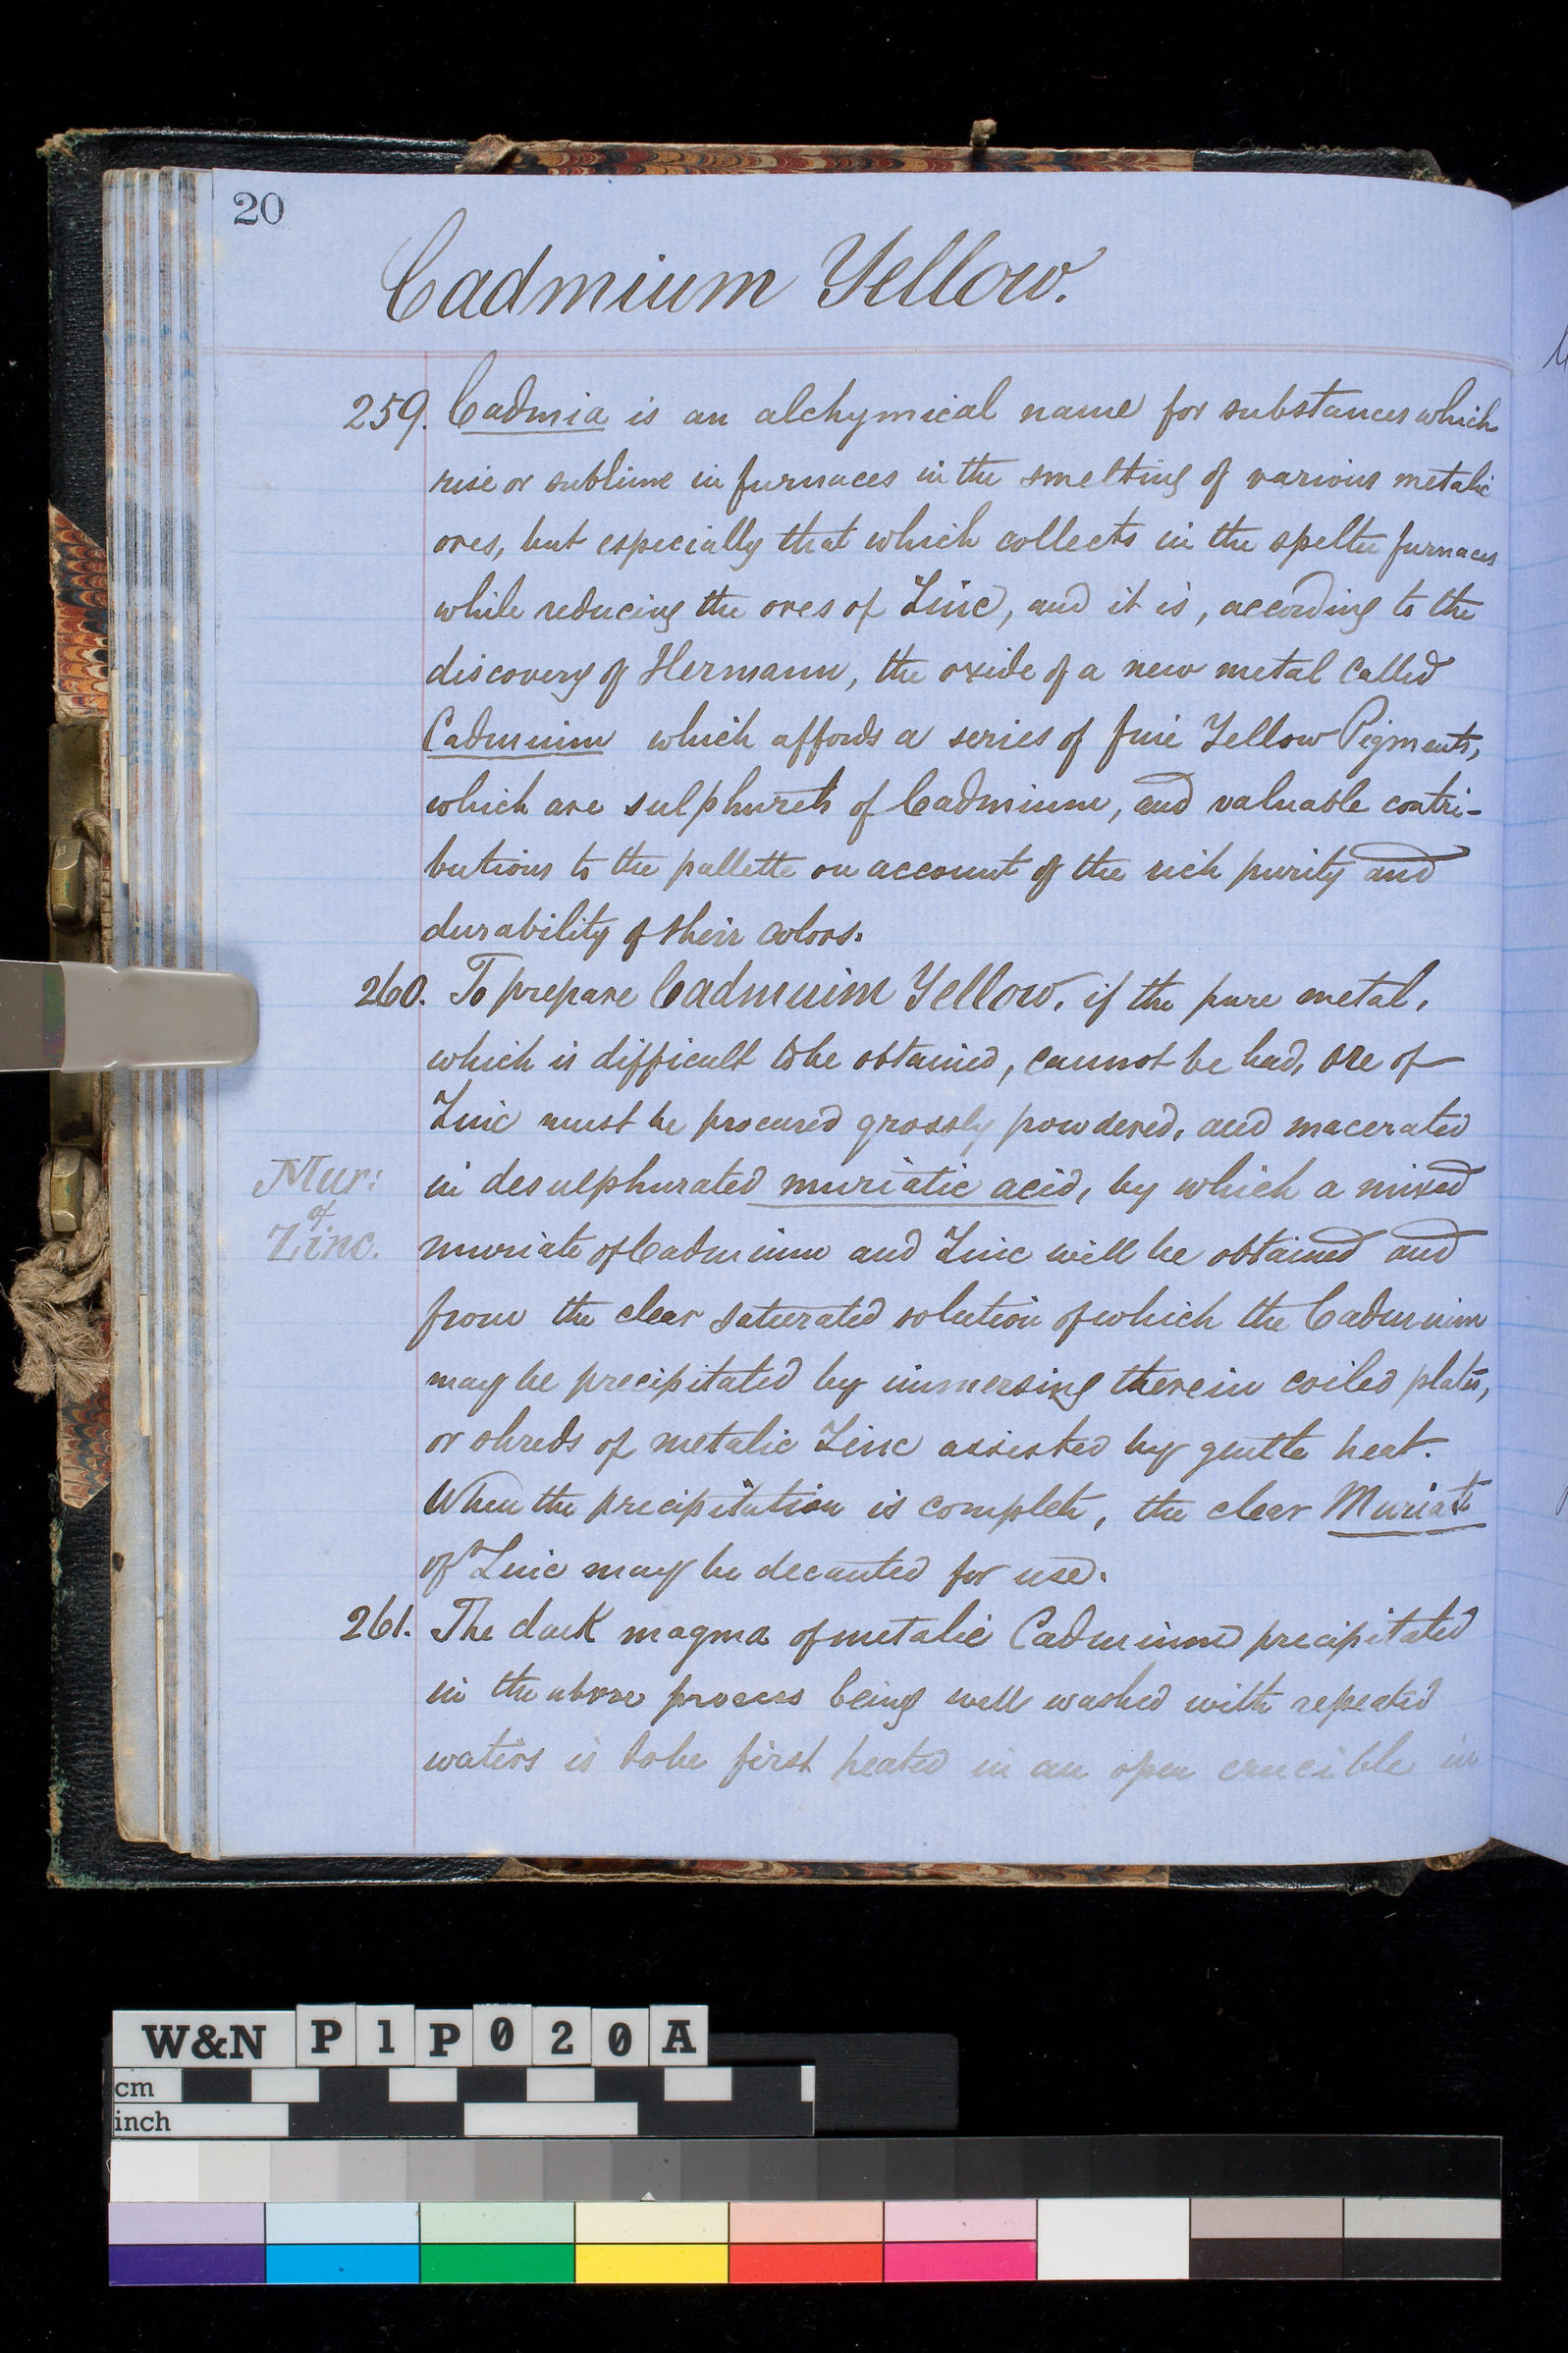 20
Cadmium Yellow.
259. Cadmia is an alchymical name for substances which
rise or sublime in furnaces in the smelting of various metalic
ores, but especially that which collects in the spelter furnaces
while reducing the ores of Zinc, and it is, according to the
discovery of Hermann, the oxide of a new metal called
Cadmium which affords a series of fine Yellow Pigments,
which are sulphurets of Cadmium, and valuable contri-
butions to the pallette on account of the rich purity and
durability of their colors.
260. To prepare Cadmium Yellow, if the pure metal,
which is difficult to be obtained, cannot be had, ore of
Zinc must be procured grossly powdered, and macerated
in desulphurated muriatic acid, by which a mixed
Mur:
of
Zinc.
muriate of Cadmium and Zinc will be obtained and
from the clear saturated solution of which the Cadmium
may be precipitated by immersing therein coiled plates,
or shreds of metalic Zinc assisted by gentle heat.
When the precipitation is complete, the clear Muriate
of Zinc may be decanted for use.
261. The dark magma of metalic Cadmium precipitated
in the above process being well washed with repeated
waters is to be first heated in an open crucible in
W&N P1P020A
cm
inch